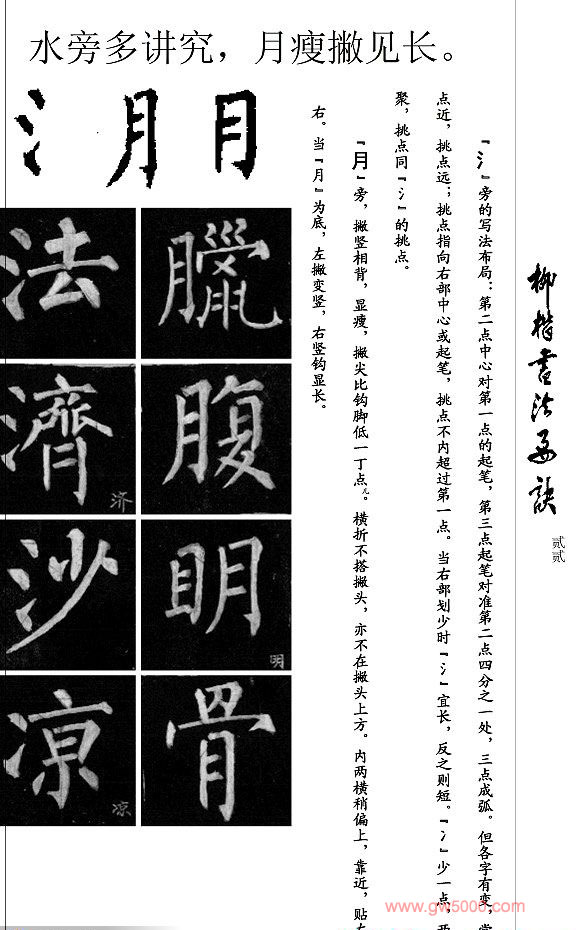 水旁多讲究，月瘦撇见长。
氵月月
柳楷書法要訣
贰贰
「氵」旁的写法布局：第二点中心对第一点的起笔，第三点起笔对准第二点四分之一处，三点成弧。但各字有变，
点近，挑点远；挑点指向右部中心或起笔，挑点不内超过第一点。当右部划少时「氵」宜长，反之则短。「冫」少一点，
聚，挑点同「氵」的挑点。
「月」旁，撇竖相背，显瘦，撇尖比钩脚低一丁点儿。横折不搭撇头，亦不在撇头上方。内两横稍偏上，靠近，贴
右。当「月」为底，左撇变竖，右竖钩显长。
法 臘
濟 济 腹
沙 眀 明
凉 凉 骨
www.gw5000.com